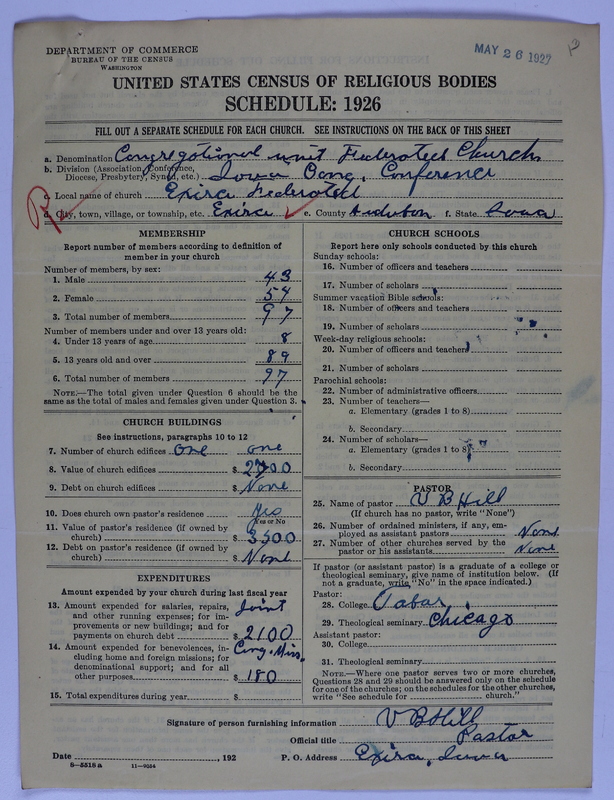 DEPARTMENT OF COMMERCE
BUREAU OF THE CENSUS
WASHINGTON
MAY 26 1927
UNITED STATES CENSUS OF RELIGIOUS BODIES
SCHEDULE: 1926
FILL OUT A SEPARATE SCHEDULE FOR EACH CHURCH. SEE INSTRUCTIONS ON THE BACK OF THIS SHEET
a. Denomination Congregational unit Federated Church
b. Division (Association, Conference, Diocese, Presbytery, Synod, etc.) Iowa Cong. Conference
c. Local name of church Exira Federated
d. City, town, village, or township, etc. Exira e. County Audubon f. State Iowa
MEMBERSHIP
Report number of members according to definition of
member in your church
Number of members, by sex:
1. Male 43
2. Female 54
3. Total number of members 97
Number of members under and over 13 years old:
4. Under 13 years of age 8
5. 13 years old and over 89
6. Total number of members 97
NOTE.—The total given under Question 6 should be the
same as the total of males and females given under Question 3.
CHURCH BUILDINGS
See instructions, paragraphs 10 to 12
7. Number of church edifices one one
8. Value of church edifices $ 2700
9. Debt on church edifices $ None
10. Does church own pastor's residence Yes
Yes or No
11. Value of pastor's residence (if owned by
church) $ 3500
12. Debt on pastor's residence (if owned by
church) $ None
EXPENDITURES
Amount expended by your church during last fiscal year
13. Amount expended for salaries, repairs, Joint
and other running expenses; for im-
provements or new buildings; and for
payments on church debt $ 2100
14. Amount expended for benevolences, in- Cong. Miss.
cluding home and foreign missions; for
denominational support; and for all
other purposes $ 180
15. Total expenditures during year $
CHURCH SCHOOLS
Report here only schools conducted by this church
Sunday schools:
16. Number of officers and teachers
17. Number of scholars
Summer vacation Bible schools:
18. Number of officers and teachers
19. Number of scholars
Week-day religious schools:
20. Number of officers and teachers
21. Number of scholars
Parochial schools:
22. Number of administrative officers
23. Number of teachers—
a. Elementary (grades 1 to 8)
b. Secondary
24. Number of scholars—
a. Elementary (grades 1 to 8)
b. Secondary
PASTOR
25. Name of pastor V B Hill
(If church has no pastor, write "None")
26. Number of ordained ministers, if any, em-
ployed as assistant pastors None
27. Number of other churches served by the
pastor or his assistants None
If pastor (or assistant pastor) is a graduate of a college or
theological seminary, give name of institution below. (If
not a graduate, write "No" in the space indicated.)
Pastor:
28. College Tabor
29. Theological seminary Chicago
Assistant pastor:
30. College
31. Theological seminary
NOTE.—Where one pastor serves two or more churches,
Questions 28 and 29 should be answered only on the schedule
for one of the churches; on the schedules for the other churches,
write "See schedule for church."
Signature of person furnishing information V B Hill
Official title Pastor
Date , 192 P. O. Address Exira, Iowa
8—5518 a 11—9034